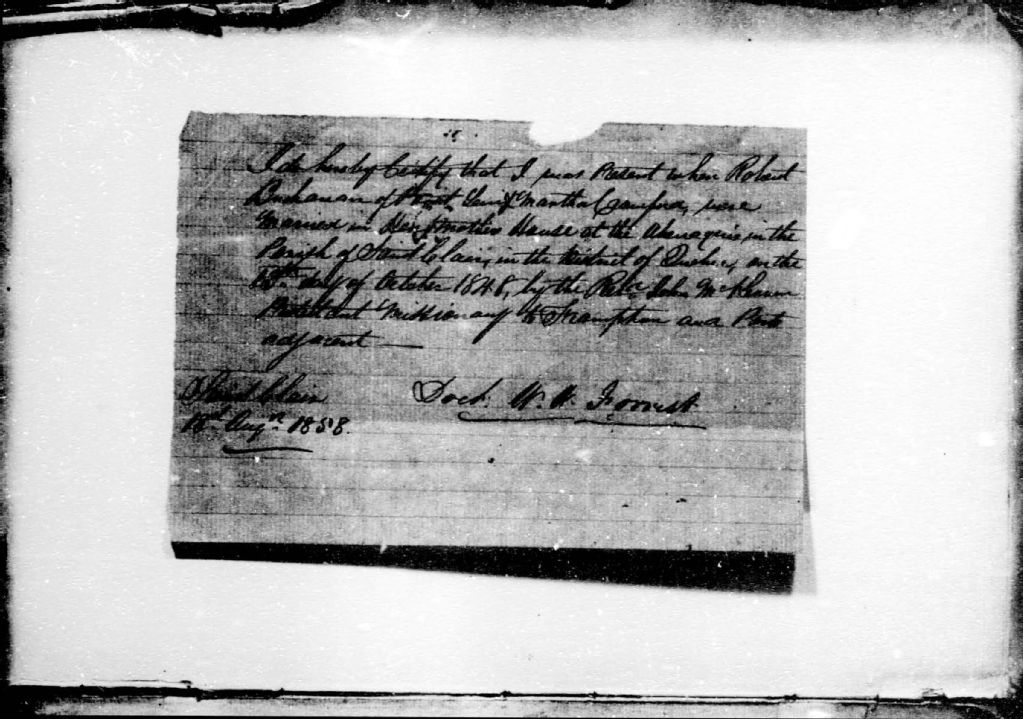 I do hereby Certify that I was Present when Robert
Buchanan of and Martha Crawford, were
Married in Her Mothers House at the Abenaquis, in the
Parish of Saint Clair, in the District of Quebec, on the
day of October 1848, by the Revd. John
Protestant Missionary to Frampton and Parts
adjacent —
Saint Clair
Doct. W. W. Forrest
18th Augst. 1858.